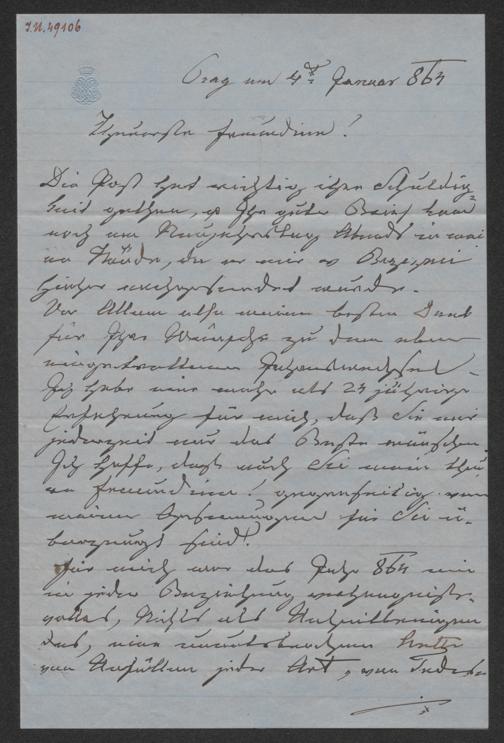 I.N. 49106
Prag am 4t Januar 864
Theuerste Freundinn!
Die Post hat richtig ihre Schuldig-
keit gethan, Ihr guter Brief kam
noch am Neujahrstag Abends in mei-
ne Hände, da er mir
hieher nachgesendet wurde.
Vor Allem also meinen besten Dank
für Ihre Wünsche zu dem eben
eingetrettenen Jahreswechsel –
Ich habe eine mehr als 25 jährige
Erfahrung für mich, daß Sie mir
jederzeit nur das Beste wünschen
Ich hoffe, daß auch Sie meine theu-
re Freundinn! gegenseitig von
meinen Gesinnungen für Sie ü-
berzeugt sind!
Für mich war das Jahr 863 ein
in jeder Beziehung verhängniß-
volles, Nichts als
des, eine ununterbrochene Kette
von Unfällen jeder Art, von Todes-